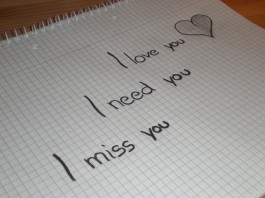 I love you
I need you
I miss you